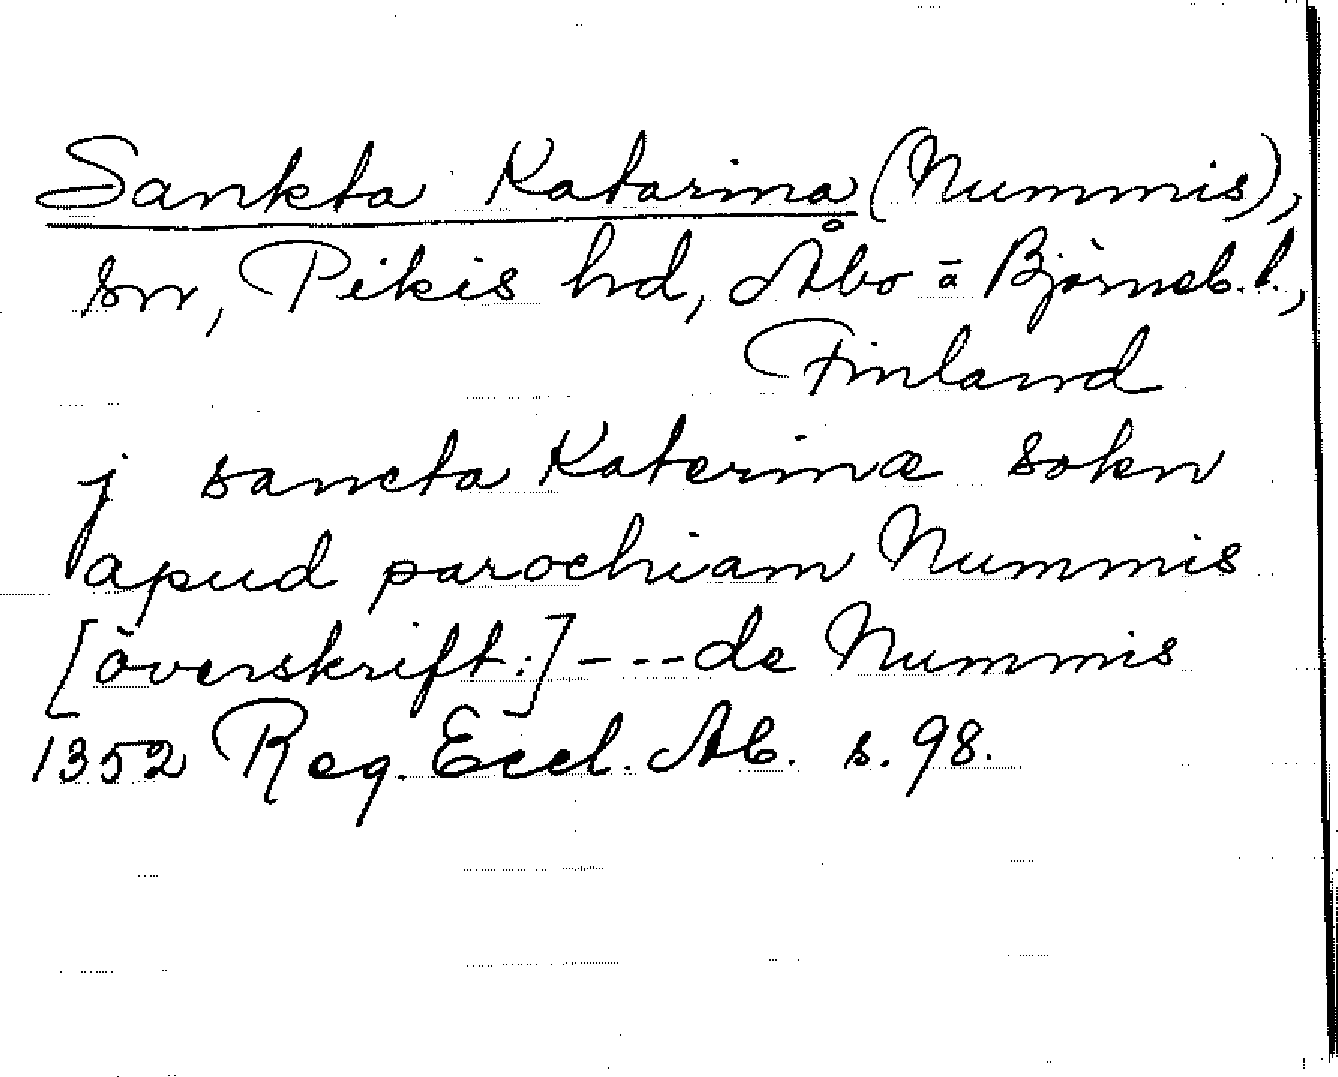 Sankta Katarina (Nummis),
sn, Pikis hd, Åbo o Björneb. l.,
Finland
j sancta Katerinæ sokn
apud parochiam Nummis
[överskrift:] --- de Nummis
1352 Reg. Eccl. Ab. s. 98.